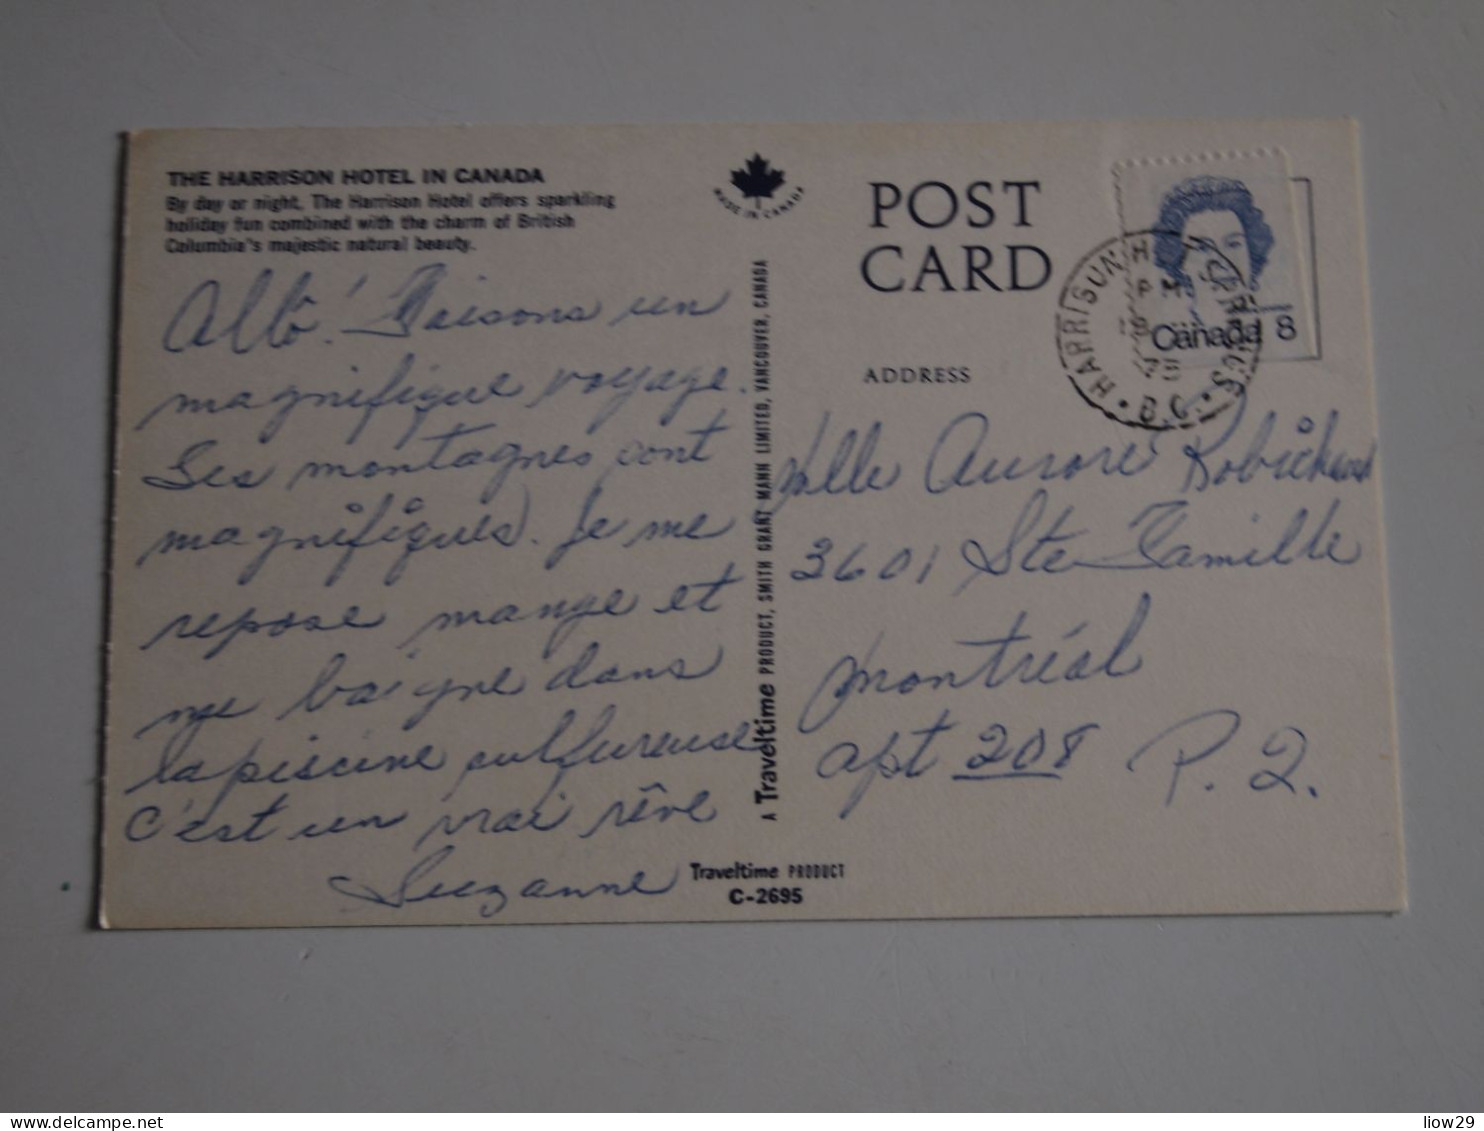 THE HARRISON HOTEL IN CANADA
By day or night, The Harrison Hotel offers sparkling
holiday fun combined with the charm of British
Columbia's majestic natural beauty.
Allô! Faisons un
magnifique voyage.
Les montagnes sont
magnifiques. Je me
repose mange et
me baigne dans
la piscine sulfureuse
c'est un vrai rêve
Suzanne
MADE IN CANADA
A Traveltime PRODUCT, SMITH GRANT MANN LIMITED, VANCOUVER, CANADA
Traveltime PRODUCT
C-2695
POST
CARD
ADDRESS
Canada 8
HARRISON HOT SPRINGS
PM
B.C.
Mlle Aurore Robichaud
3601 Ste Famille
Montréal
apt 208 P.2.
liow29